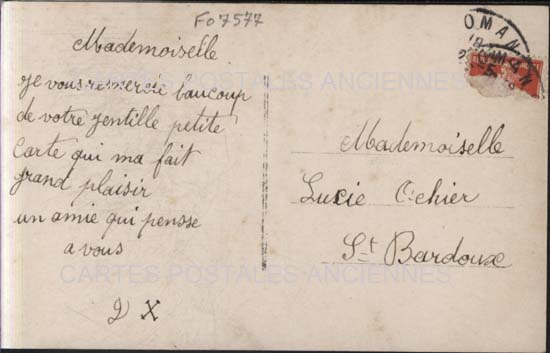 Fo 7577
Mademoiselle
je vous remercie baucoup
de votre gentille petite
Carte qui ma fait
grand plaisir
un amie qui pensse
a vous
X
Mademoiselle
Lucie Ochier
St Bardoux
ROMANS
CARTES POSTALES ANCIENNES
CARTES POSTALES ANCIENNES